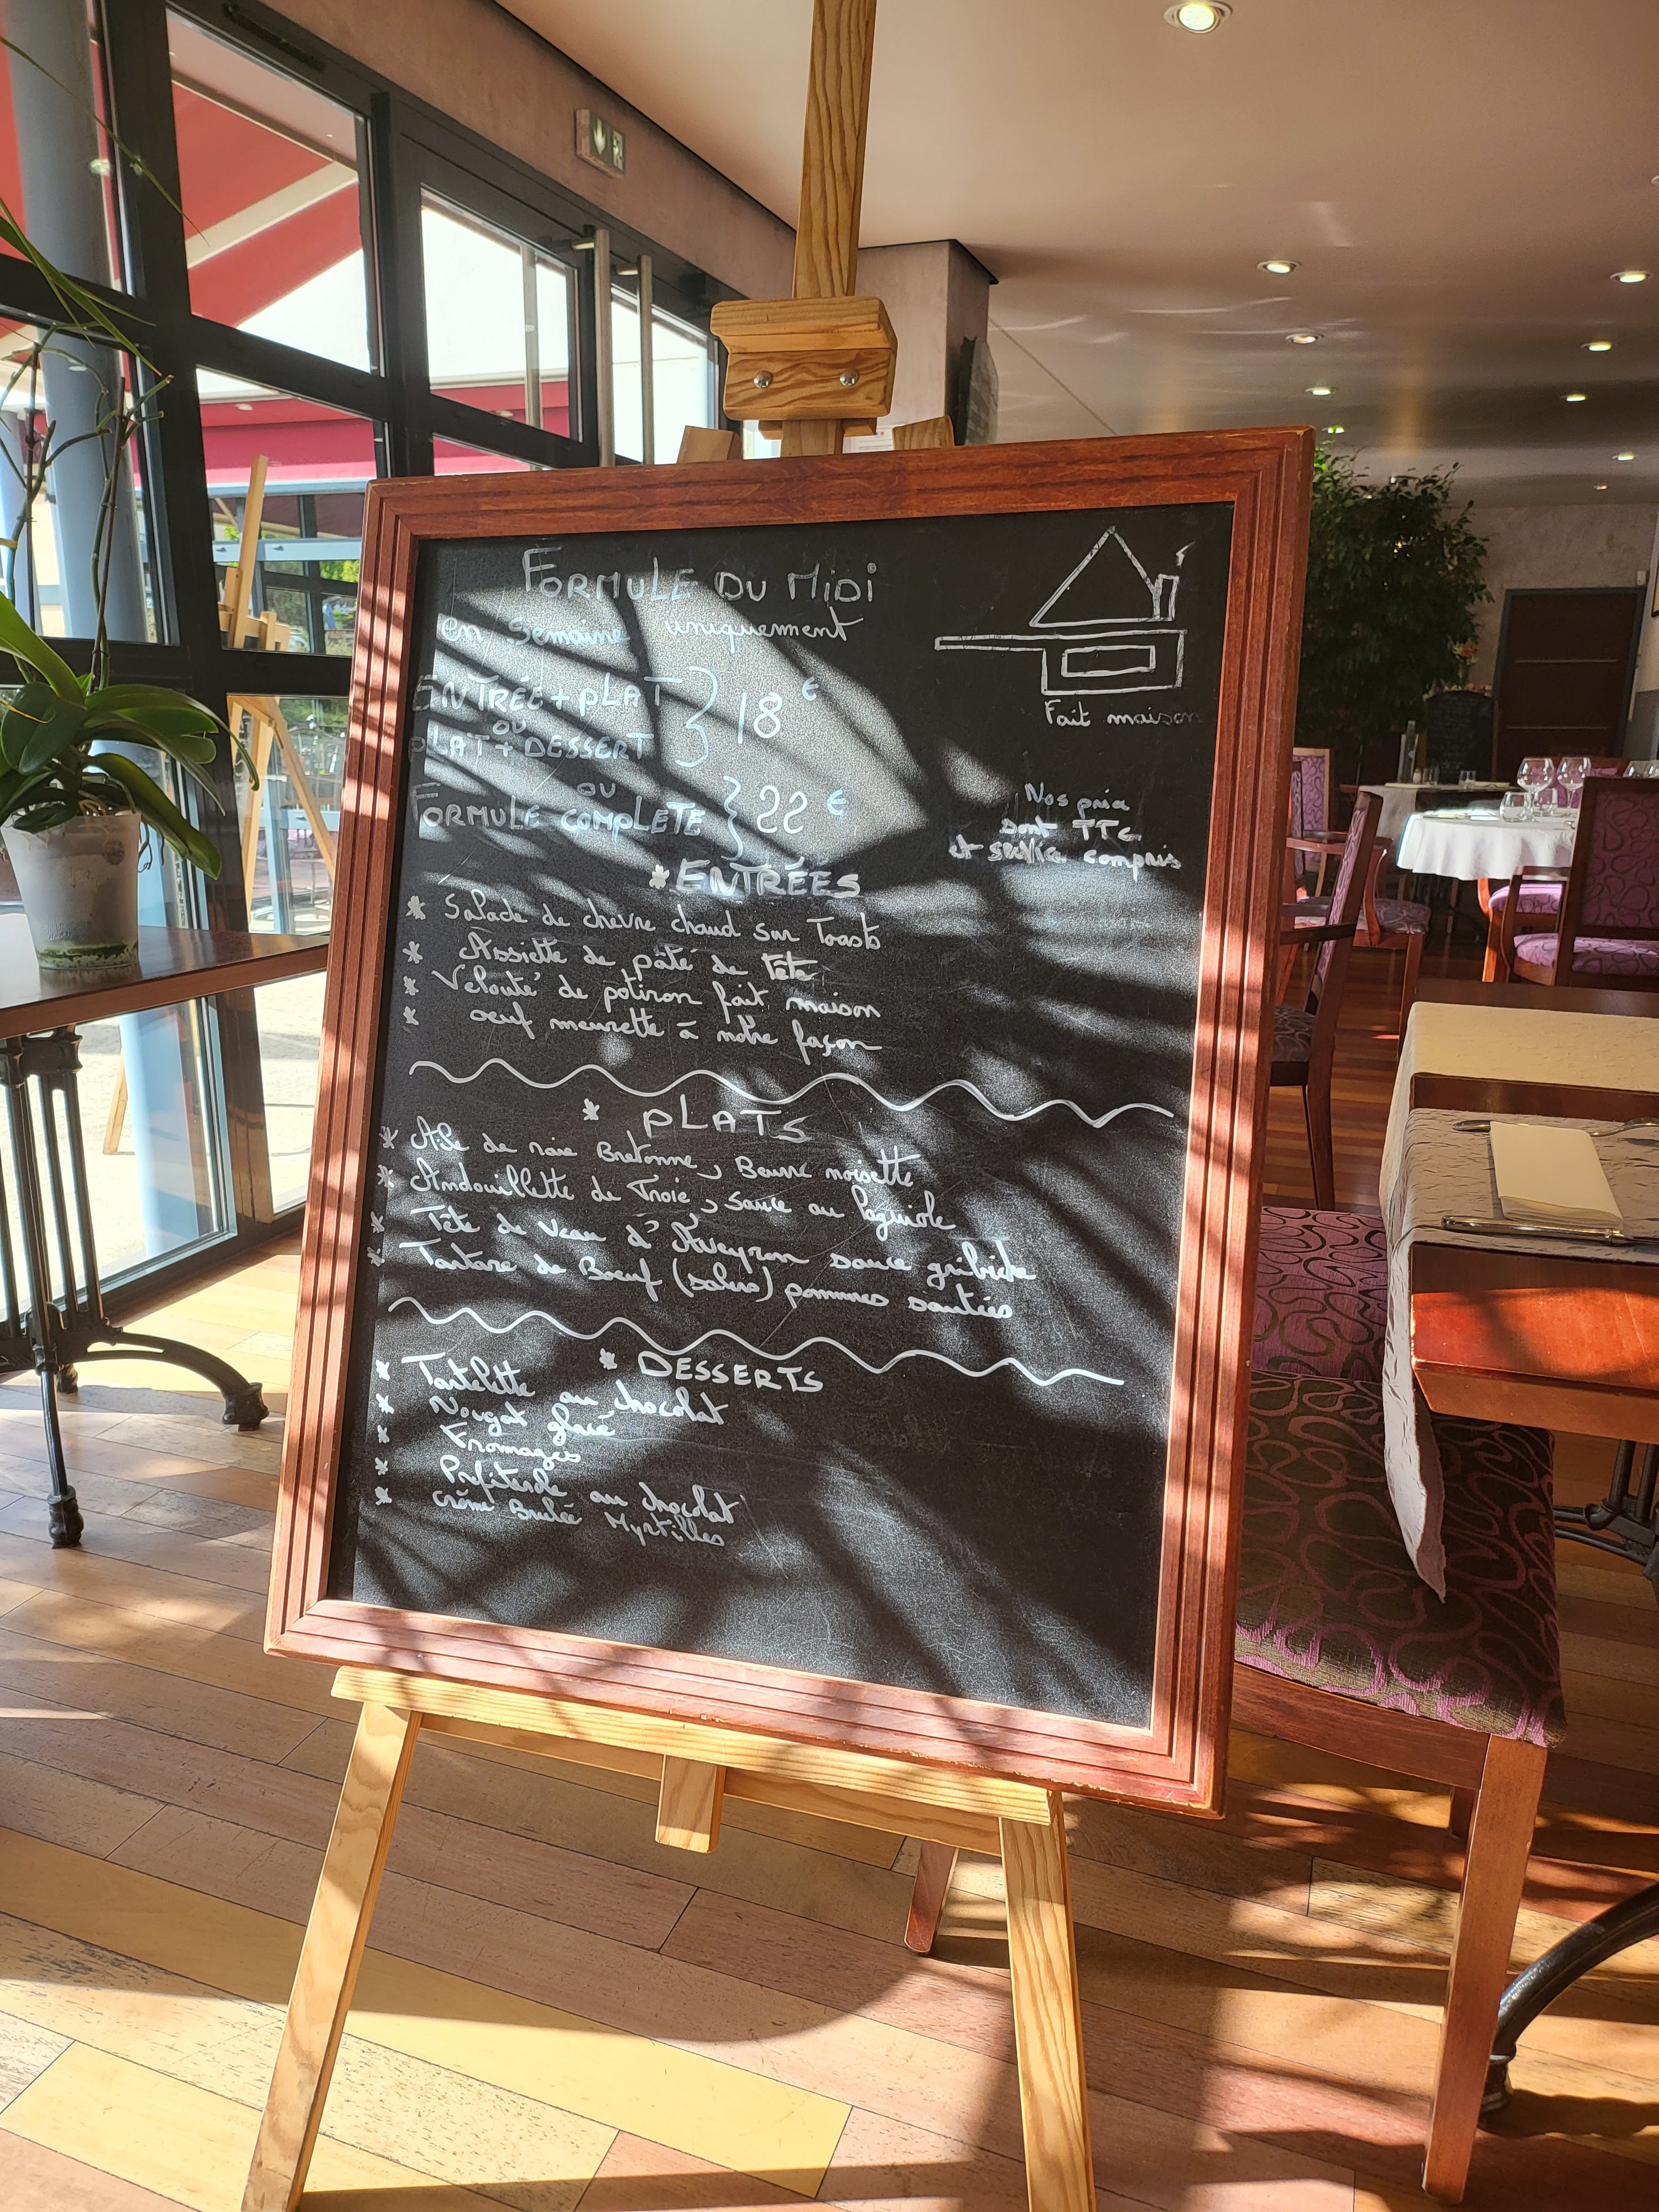 FORMULE DU MiDi
en semaine uniquement
ENTRÉE + PLAT
ou
PLAT + DESSERT
} 18 €
ou
FORMULE COMPLETE } 22 €
Fait maison
Nos prix
sont TTC
et service compris
* ENTRÉES
* Salade de chevre chaud sur Toasts
* Assiette de pâté de tête
* Velouté de potiron fait maison
* oeuf meurette à notre façon
* PLATS
* Aile de raie Bretonne, Beurre noisette
* Andouillette de Troie, sauce au laguiole
* Tête de Veau d'Aveyron sauce gribiche
* Tartare de Boeuf (salers) pommes sautées
* DESSERTS
* Tartelette au chocolat
* Nougat glacé
* Fromages
* Profiterole au chocolat
* crème Brulée Myrtilles